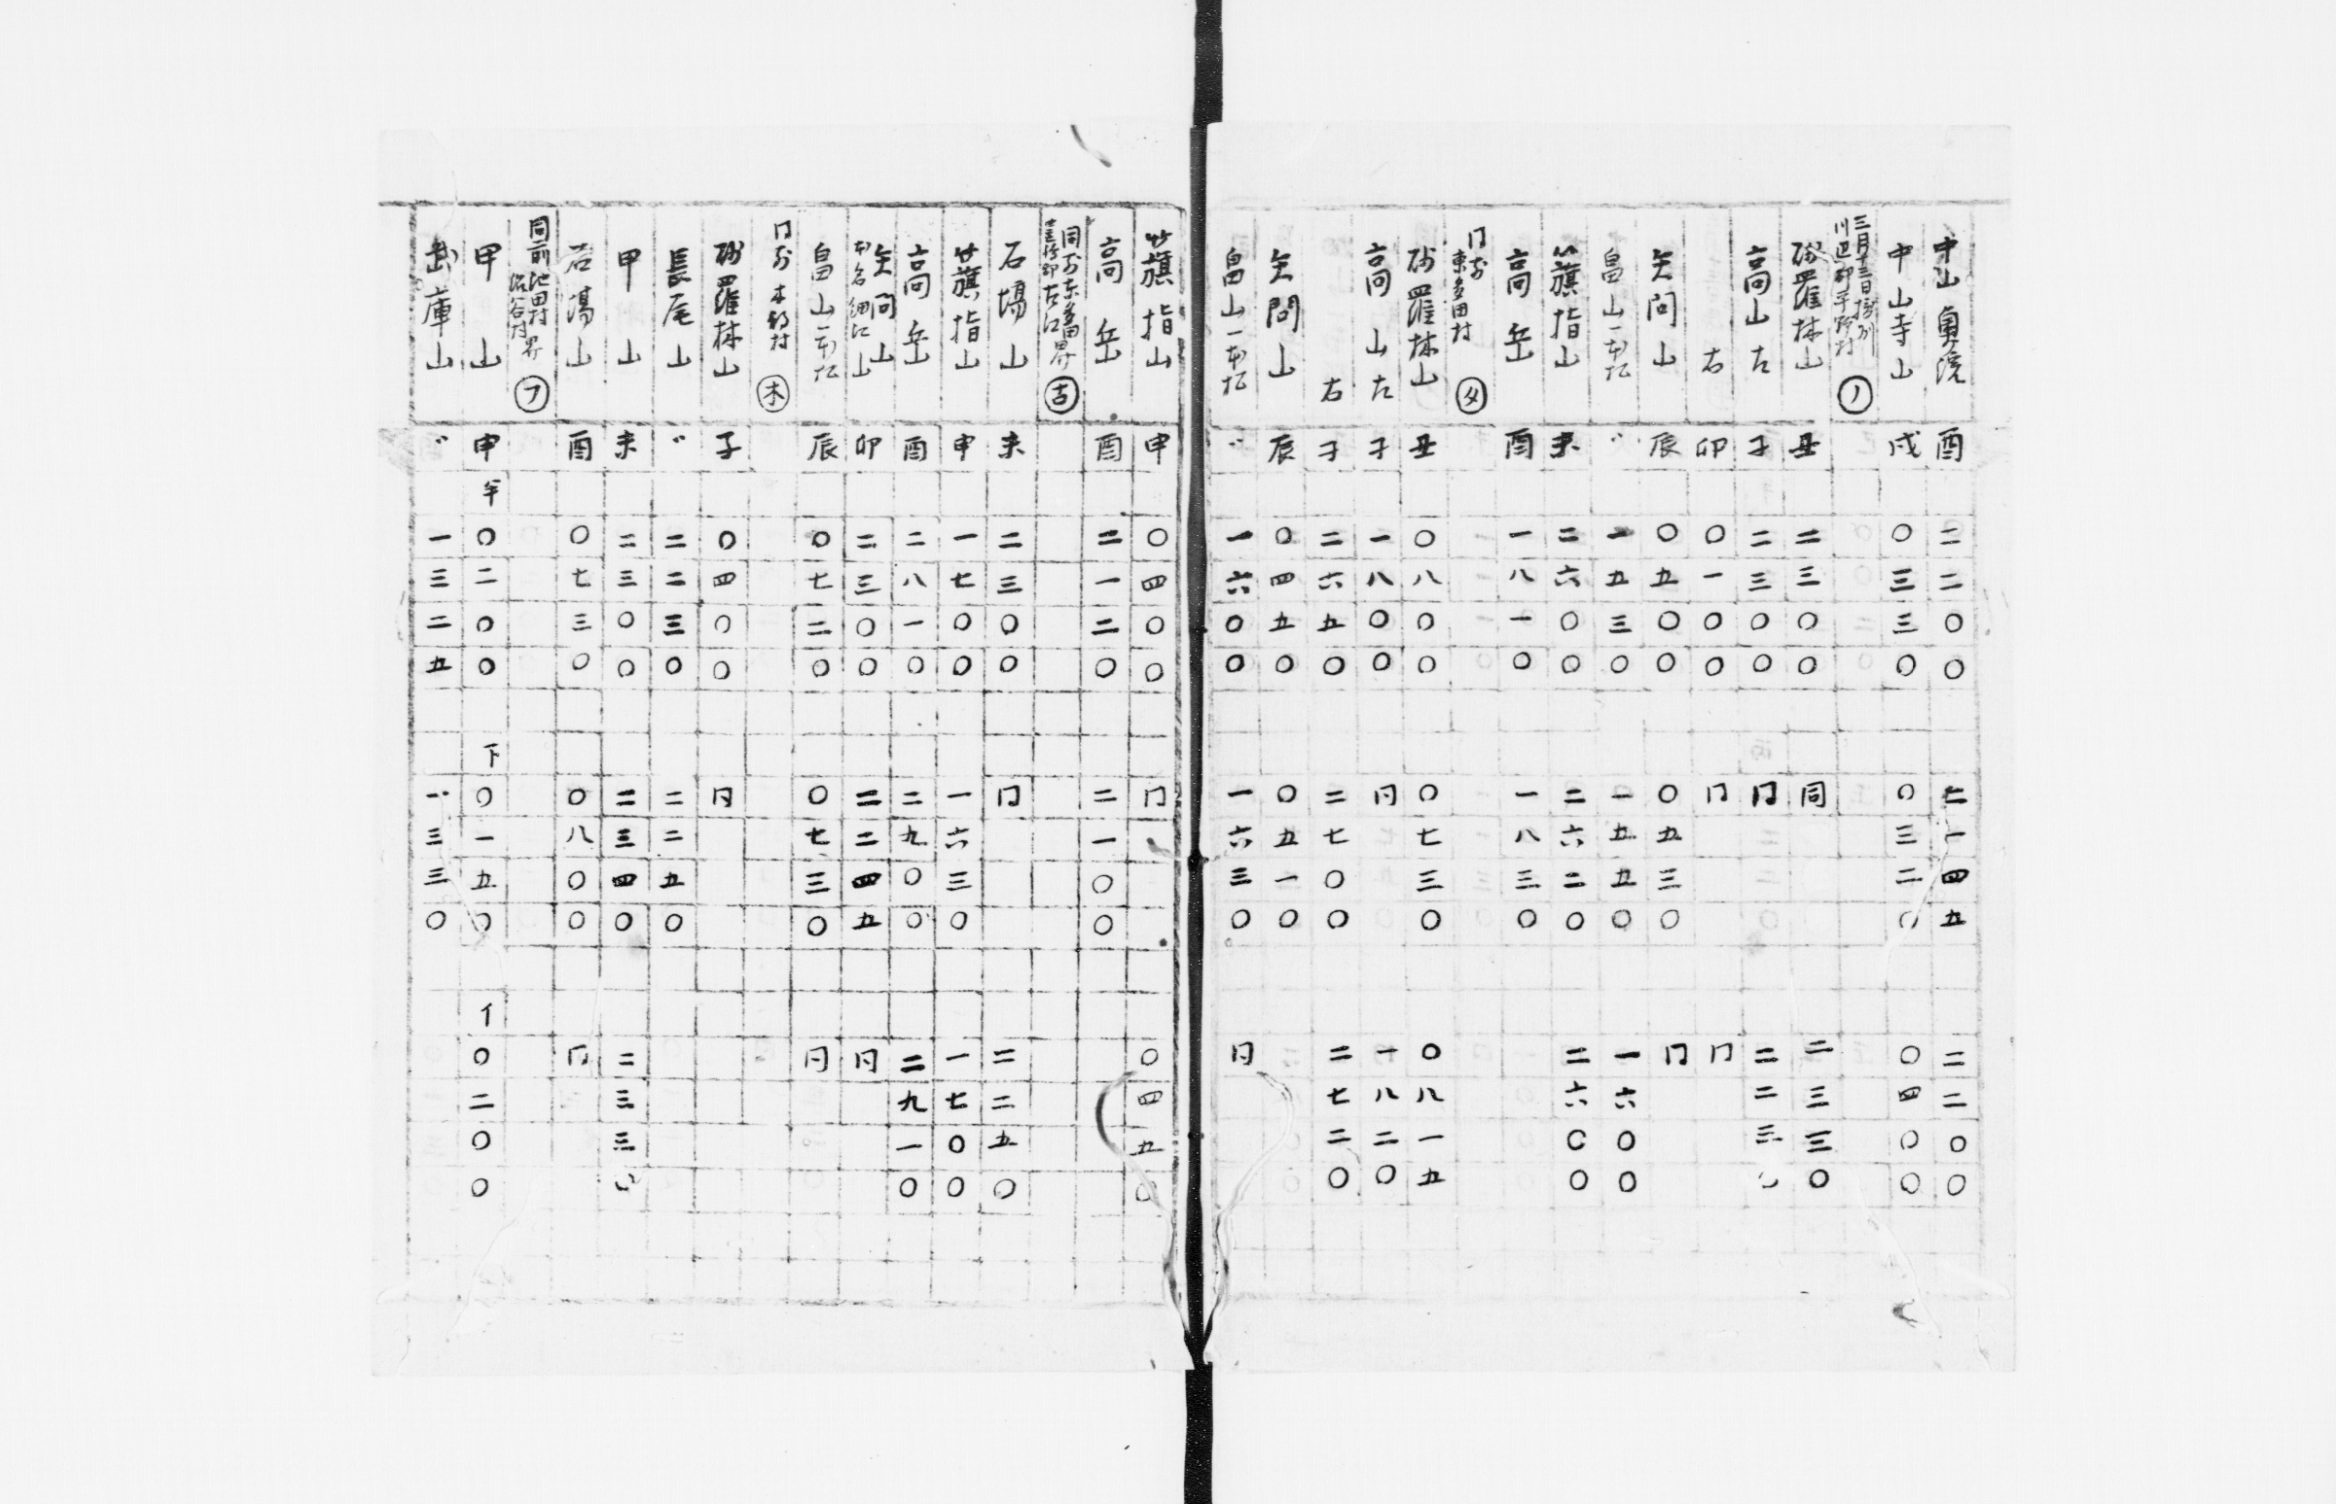 中山奥院 酉 二二〇〇 七一四五 二二〇〇
中山寺山 戌 〇三三〇 〇三二〇 〇四〇〇
三月十三日摂州
川辺郡平野村 ノ
砂羅林山 丑 二三〇〇 同 二三三〇
高山左 子 二三〇〇 同 二二三〇
右 卯 〇一〇〇 同 同
矢問山 辰 〇五〇〇 〇五三〇 同
畠山一本松 〃 一五三〇 一五五〇 一六〇〇
旗指山 未 二六〇〇 二六二〇 二六〇〇
高岳 酉 一八一〇 一八三〇
同前
東多田村
砂羅林山 丑 〇八〇〇 〇七三〇 〇八一五
高山左 子 一八〇〇 同 一八二〇
右 子 二六五〇 二七〇〇 二七二〇
矢問山 辰 〇四五〇 〇五一〇
畠山一本松 〃 一六〇〇 一六三〇 同
旗指山 申 〇四〇〇 同 〇四五〇
高岳 酉 二一二〇 二一〇〇
同前東多田界 古
石場山 未 二三〇〇 同 二二五〇
旗指山 申 一七〇〇 一六三〇 一七〇〇
高岳 酉 二八一〇 二九〇〇 二九一〇
矢問山
本名細江山 卯 二三〇〇 二二四五 同
畠山一本松 辰 〇七二〇 〇七三〇 同
同前 木部村 木
砂羅林山 子 〇四〇〇 同
長尾山 〃 二二三〇 二二五〇
甲山 未 二三〇〇 二三四〇 二三三〇
石場山 酉 〇七三〇 〇八〇〇 同
同前池田村
界 フ
甲山 申 〇二〇〇 下 〇一五〇 イ 〇二〇〇
武庫山 〃 一三二五 一三三〇